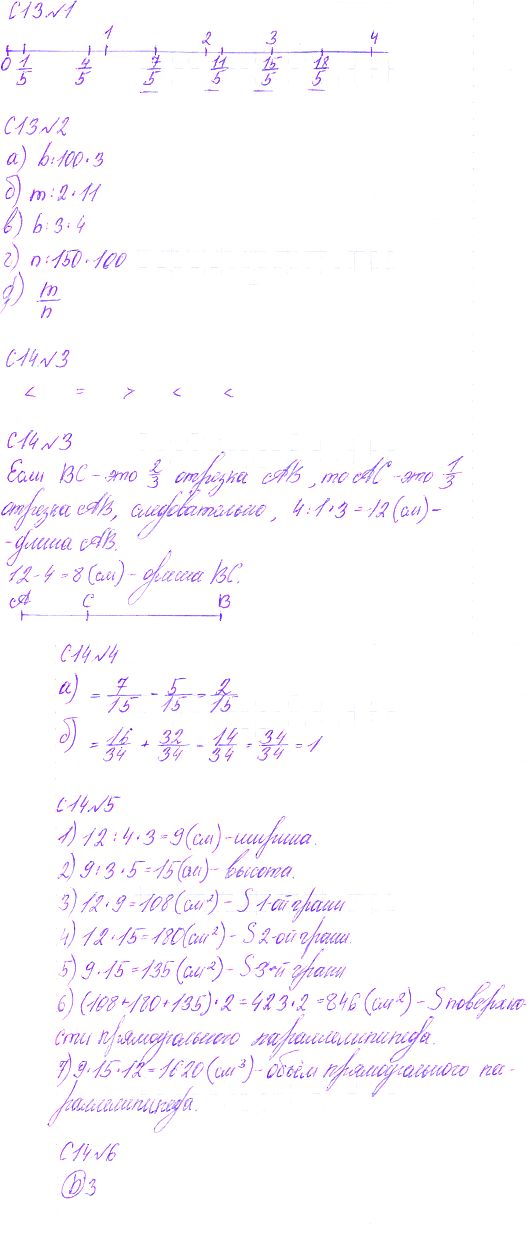 С13 №1
1 2 3 4
0 1/5 4/5 7/5 11/5 15/5 18/5
С13 №2
а) b:100·3
б) m:2·11
в) b:3·4
г) n:150·100
д) m/n
С14 №3
< = > < <
С14 №3
Если BC - это 2/3 отрезка AB, то AC - это 1/3
отрезка AB, следовательно, 4:1·3=12(см)-
-длина AB.
12-4=8(см)- длина BC.
A C B
С14 №4
а) = 7/15 - 5/15 = 2/15
б) = 16/34 + 32/34 - 14/34 = 34/34 = 1
С14 №5
1) 12:4·3=9(см)-ширина.
2) 9:3·5=15(см)- высота.
3) 12·9=108(см²)- S 1-ой грани
4) 12·15=180(см²)- S 2-ой грани.
5) 9·15=135(см²)- S 3-й грани
6) (108+180+135)·2=423·2=846(см²)- S поверхно-
сти прямоугольного параллелепипеда.
7) 9·15·12=1620(см³)-объём прямоугольного па-
раллелепипеда.
С14 №6
b 3